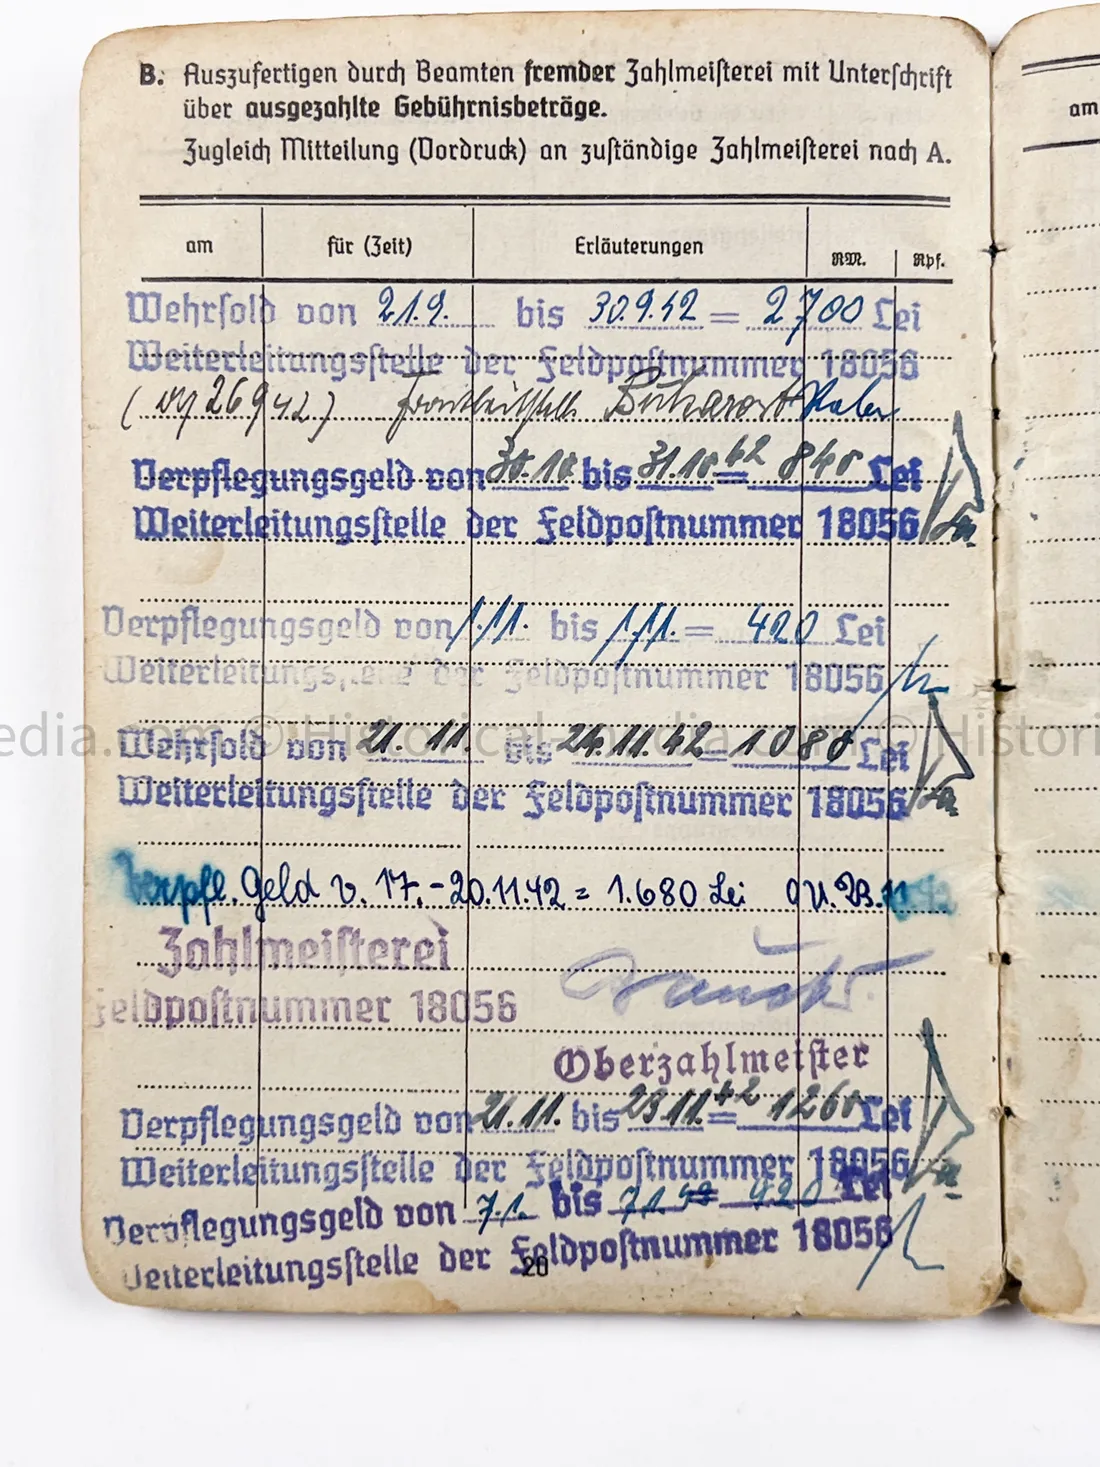 B. Auszufertigen durch Beamten fremder Zahlmeisterei mit Unterschrift
über ausgezahlte Gebührnisbeträge.
Zugleich Mitteilung (Vordruck) an zuständige Zahlmeisterei nach A.
am
am für (Zeit) Erläuterungen RM. Rpf.
Wehrsold von 21.9. bis 30.9.42 = 2700 Lei
Weiterleitungsstelle der Feldpostnummer 18056
Frontleitstelle Bukarest
Verpflegungsgeld von 30.10 bis 31.10 42 = 840 Lei
Weiterleitungsstelle der Feldpostnummer 18056
Verpflegungsgeld von 1.11. bis 1.11. = 420 Lei
Weiterleitungsstelle der Feldpostnummer 18056
edia.com © Historical-media.com © Histori
Wehrsold von 21. 11. bis 24.11.42 = 1080 Lei
Weiterleitungsstelle der Feldpostnummer 18056
Verpfl. Geld v. 17.-20.11.42 = 1.680 Lei
Zahlmeisterei
Feldpostnummer 18056
Oberzahlmeister
Verpflegungsgeld von 21.11. bis 23.11. 42 = 1260 Lei
Weiterleitungsstelle der Feldpostnummer 18056
Verpflegungsgeld von 7.1. bis 7.1.43 = 420 Lei
Weiterleitungsstelle der Feldpostnummer 18056
20